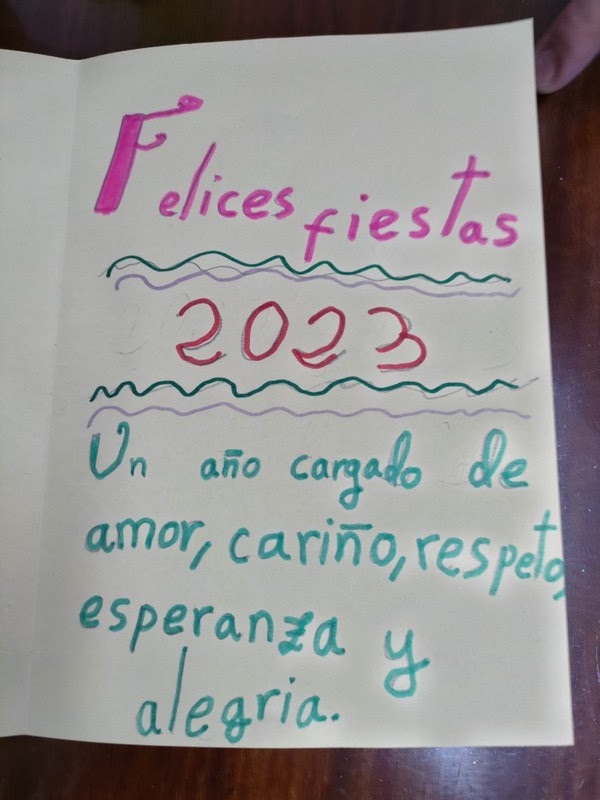 Felices fiestas
2023
Un año cargado de
amor, cariño, respeto,
esperanza y
alegria.